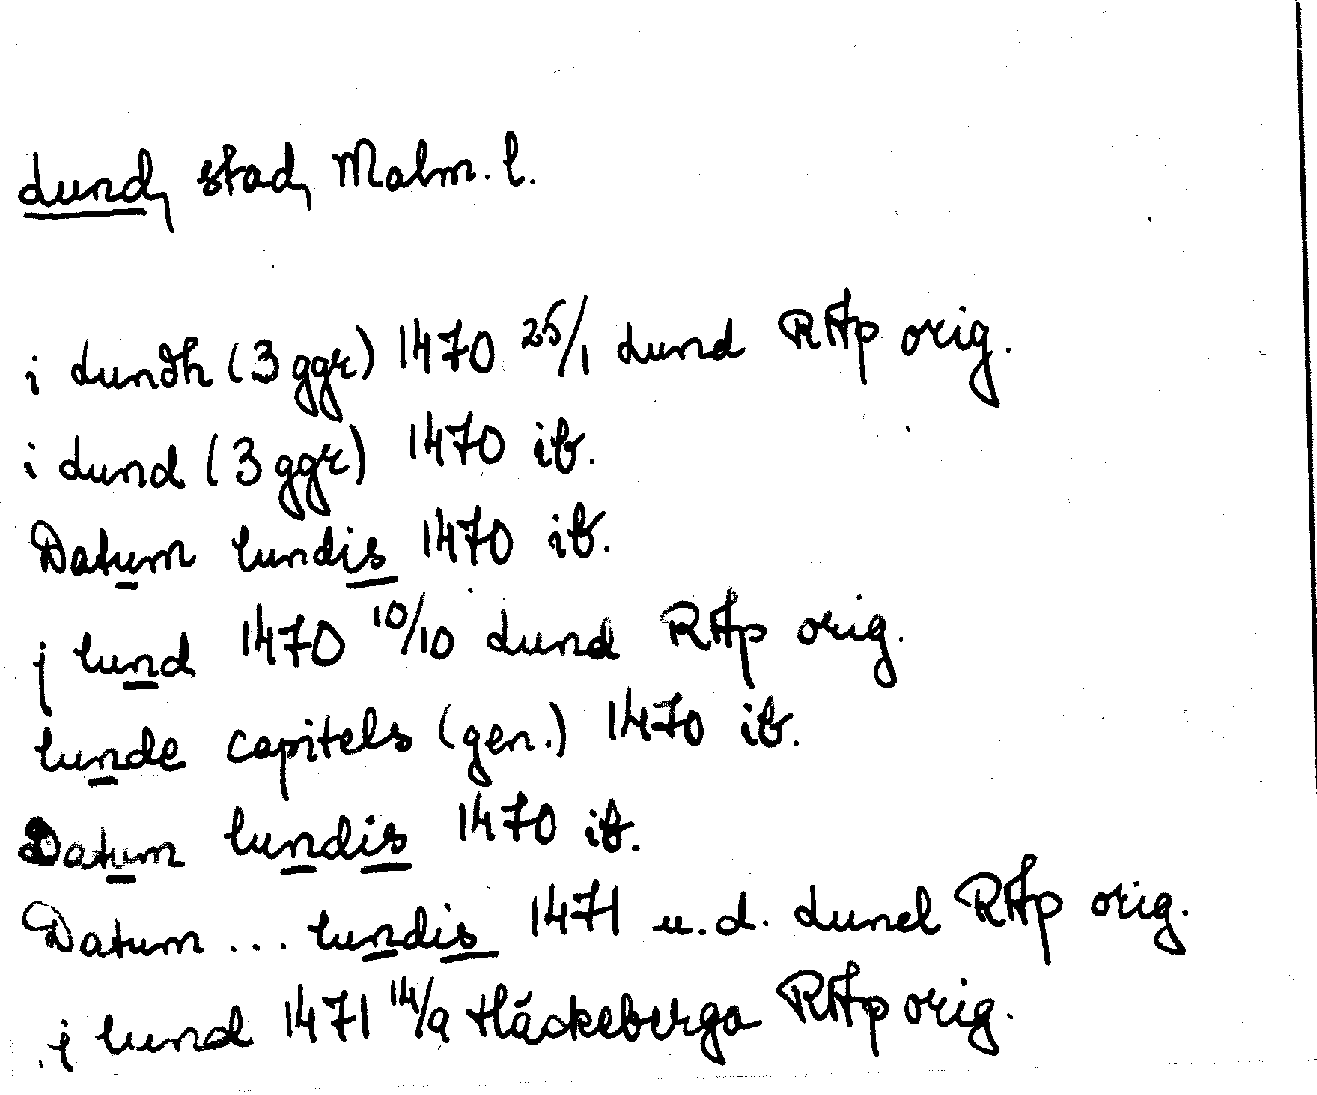 Lund, stad, Malm. l.
i Lundh (3 ggr) 1470 25/1 Lund RAp orig.
i Lund (3 ggr) 1470 ib.
Datum lundis 1470 ib.
j lund 1470 10/10 Lund RAp orig.
lunde capitels (gen.) 1470 ib.
Datum lundis 1470 ib.
Datum ... lundis 1471 u. d. Lund RAp orig.
j lund 1471 14/9 Häckeberga RAp orig.